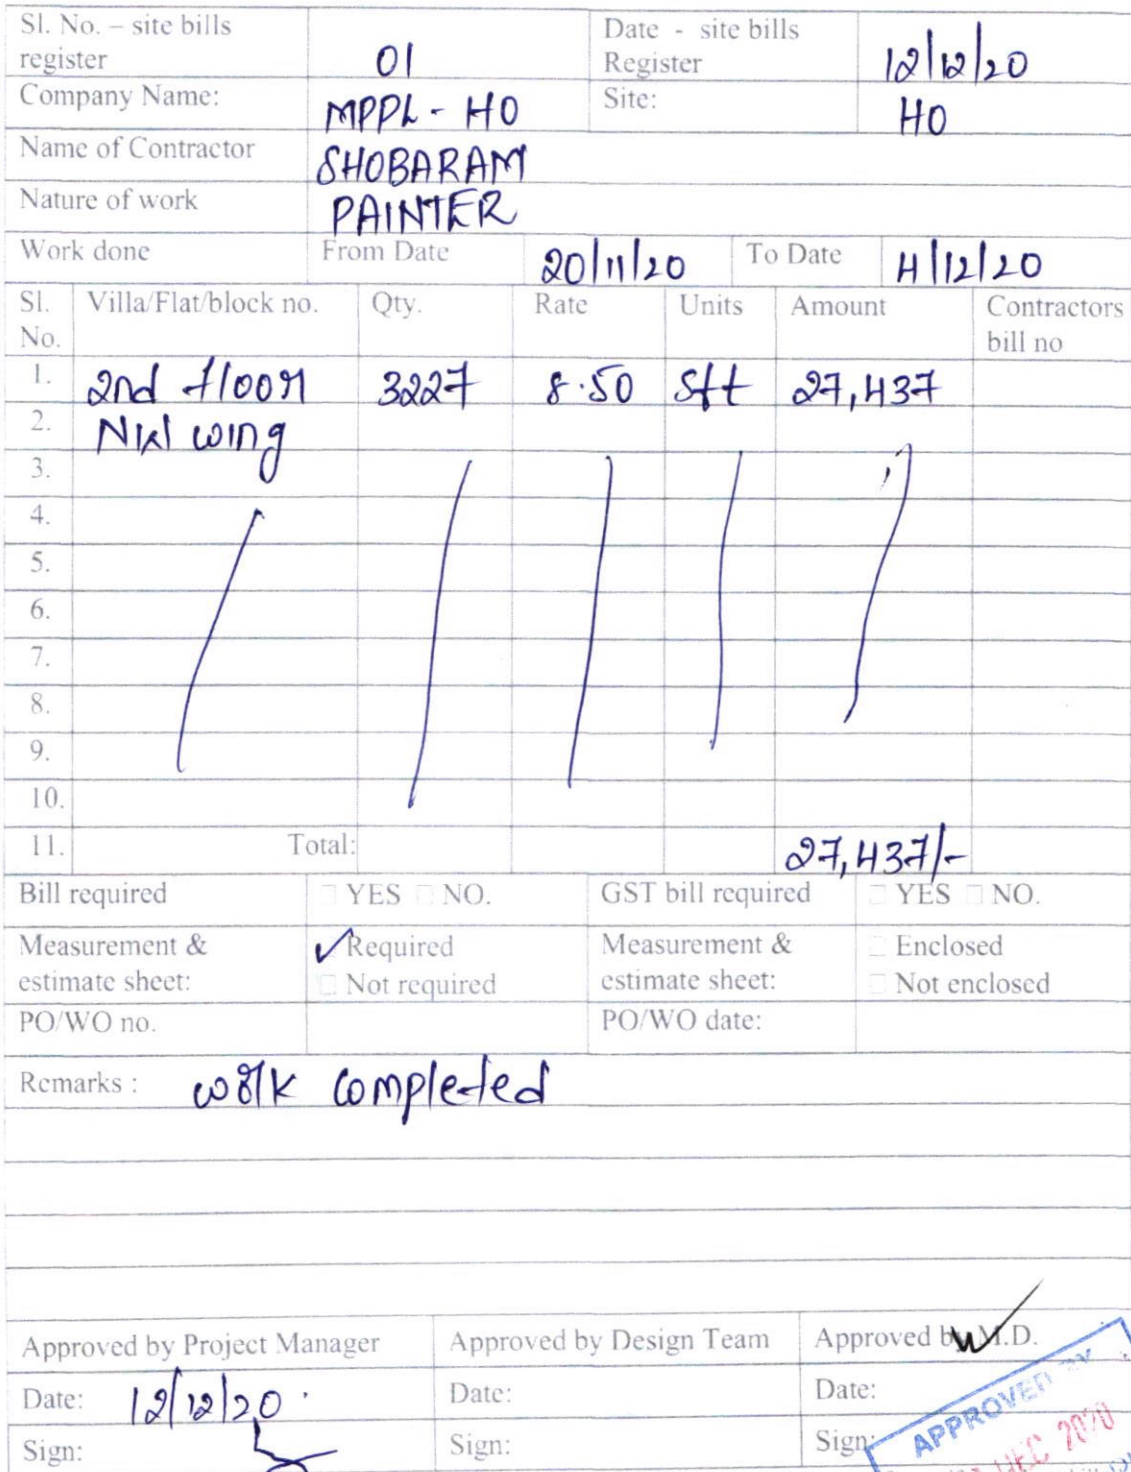 Sl. No. – site bills register 01 Date - site bills Register 12/12/20
Company Name: MPPL - HO Site: HO
Name of Contractor SHOBARAM
Nature of work PAINTER
Work done From Date 20/11/20 To Date 4/12/20
Sl. No. Villa/Flat/block no. Qty. Rate Units Amount Contractors bill no
1. 2nd floor 3227 8.50 Sft 27,437
2. wing
3.
4.
5.
6.
7.
8.
9.
10.
11. Total: 27,437/-
Bill required YES NO. GST bill required YES NO.
Measurement & estimate sheet: Required Not required Measurement & estimate sheet: Enclosed Not enclosed
PO/WO no. PO/WO date:
Remarks : work completed
Approved by Project Manager Approved by Design Team Approved by M.D.
Date: 12/12/20 Date: Date:
Sign: Sign: Sign:
APPROVED BY
DEC 2020